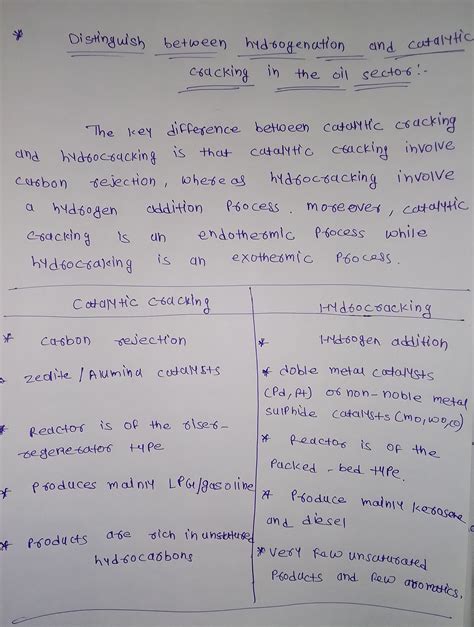 * Distinguish between hydrogenation and catalytic
cracking in the oil sector:-
The key difference between catalytic cracking
and hydrocracking is that catalytic cracking involve
carbon rejection, whereas hydrocracking involve
a hydrogen addition process. moreover, catalytic
cracking is an endothermic process while
hydrocracking is an exothermic process.
Catalytic cracking
* carbon rejection
zeolite / Alumina catalysts
* Reactor is of the riser-
regenerator type
* Produces mainly LPG/gasoline
* Products are rich in
hydrocarbons
Hydrocracking
* Hydrogen addition
* doble metal catalysts
(Pd, Pt) or non-noble metal
sulphide catalysts (mo, wo, co)
* Reactor is of the
Packed-bed type.
* Produce mainly kerosene
and diesel
* very few unsaturated
products and few aromatics.